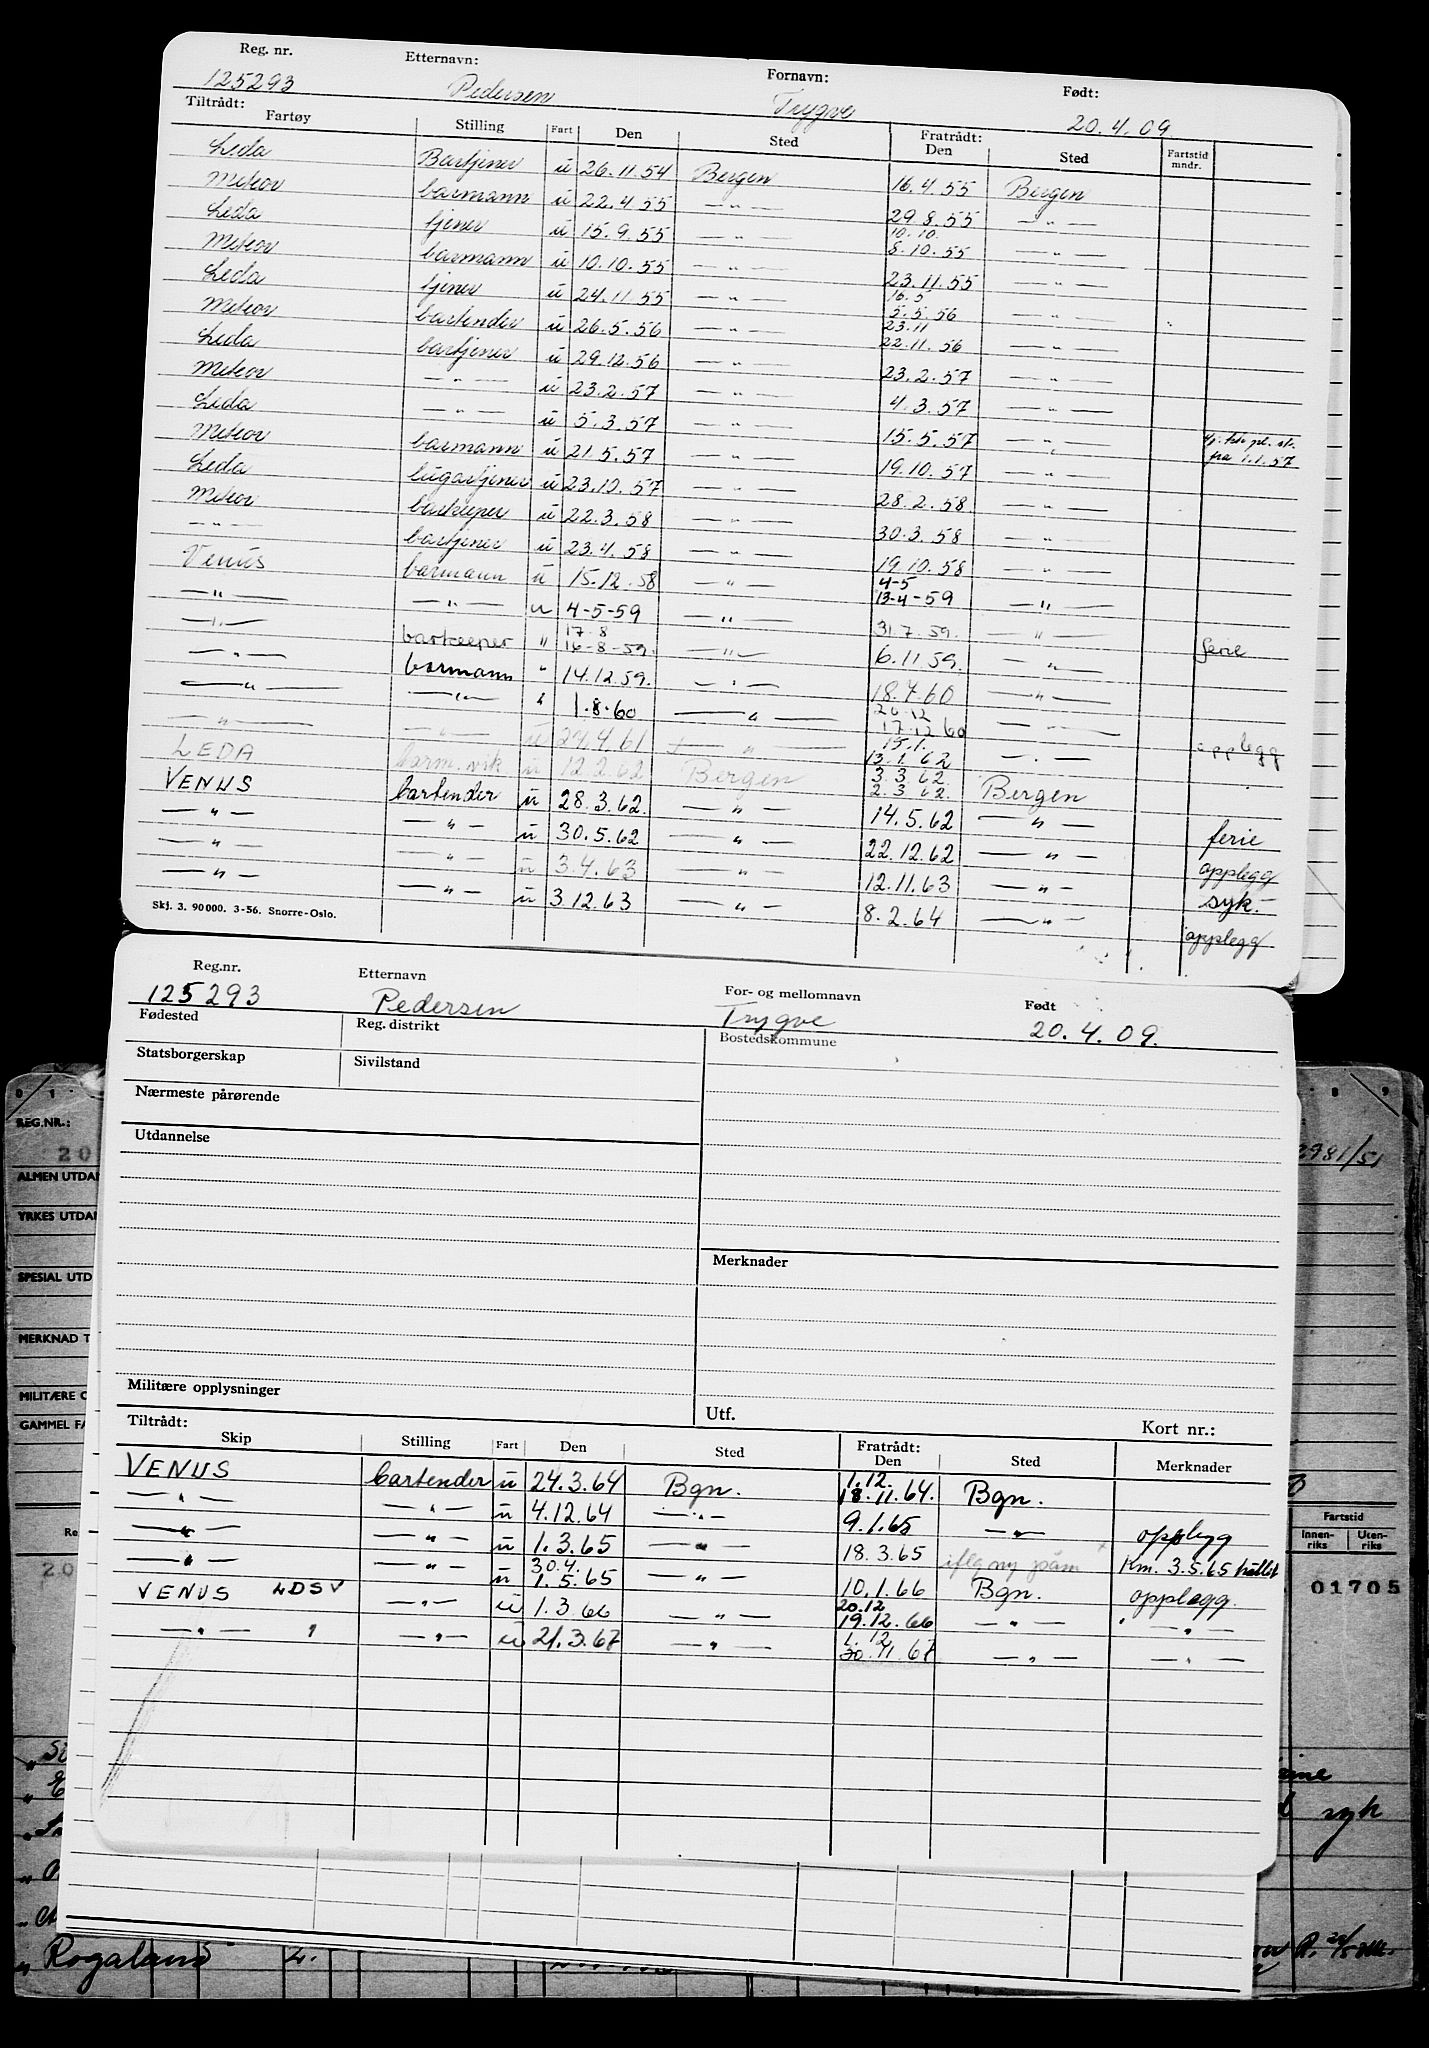 Reg. nr. Etternavn: Fornavn: Født:
125293 Pedersen Trygve 20.4.09.
Tiltrådt: Fratrådt:
Fartøy Stilling Fart Den Sted Den Sted Fartstid mndr.
Leda Bartjener u 26.11.54 Bergen 16.4.55 Bergen
Meteor barmann u 22.4.55 — " — 29.8.55 — " —
Leda tjener u 15.9.55 — " — 10.10. 8.10.55 — " —
Meteor barmann u 10.10.55 — " — 23.11.55 — " —
Leda tjener u 24.11.55 — " — 16.5 5.5.56 — " —
Meteor bartender u 26.5.56 — " — 23.11 22.11.56 — " —
Leda bartjener u 29.12.56 — " — 23.2.57 — " —
Meteor — " — u 23.2.57 — " — 4.3.57 — " —
Leda — " — u 5.3.57 — " — 15.5.57 — " — fra 1.1.57
Meteor barmann u 21.5.57 — " — 19.10.57 — " —
Leda lugartjener u 23.10.57 — " — 28.2.58 — " —
Meteor barkeeper u 22.3.58 — " — 30.3.58 — " —
— " — bartjener u 23.4.58 — " — 19.10.58 — " —
Venus barmann u 15.12.58 — " — 4-5 13-4-59 — " —
— " — — " — u 4-5-59 — " — 31.7.59. — " — ferie
— " — barkeeper " 17.8 16-8-59. — " — 6.11.59. — " —
— " — barmann " 14.12.59. — " — 18.7.60 — " —
— " — — " — " 1.8.60 — " — 20.12 17.12.60 — " — opplegg
— " — — " — u 27.4.61 — " — 15.1. 13.1.62 — " —
LEDA barm. vik u 12.2.62 Bergen 3.3.62 2.3.62. Bergen
VENUS bartender u 28.3.62. — " — 14.5.62 — " — ferie
— " — — " — u 30.5.62 — " — 22.12.62 — " — opplegg
— " — — " — u 3.4.63 — " — 12.11.63 — " — syk.
— " — — " — u 3.12.63 — " — 8.2.64 — " — opplegg
Skj. 3. 90000. 3-56. Snorre-Oslo.
Reg.nr. Etternavn For- og mellomnavn Født
125293 Pedersen Trygve 20.4.09.
Fødested Reg. distrikt Bostedskommune
Statsborgerskap Sivilstand
Nærmeste pårørende
Utdannelse
Merknader
Militære opplysninger Utf. Kort nr.:
Tiltrådt: Fratrådt:
Skip Stilling Fart Den Sted Den Sted Merknader
VENUS bartender u 24.3.64 Bgn. 1.12. 18.11.64. Bgn.
— " — — " — u 4.12.64 — " — 9.1.65 — " — opplegg
— " — — " — u 1.3.65 — " — 18.3.65 iflg ny påm Km. 3.5.65
— " — — " — u 30.4. 1.5.65 — " — 10.1.66 Bgn. opplegg.
VENUS LDSV — " — u 1.3.66 — " — 20.12 19.12.66 — " — — " —
— " — " — " — u 21.3.67 — " — 1.12 30.11.67 — " — — " —
0 1 8 9
REG.NR.:
20
2981/51
ALMEN UTDAN
YRKES UTDAN
SPESIAL UTD
MERKNAD T
MILITÆRE O
GAMMEL FA
Fartstid
Innenriks Utenriks
20
01705
syk
Rogaland